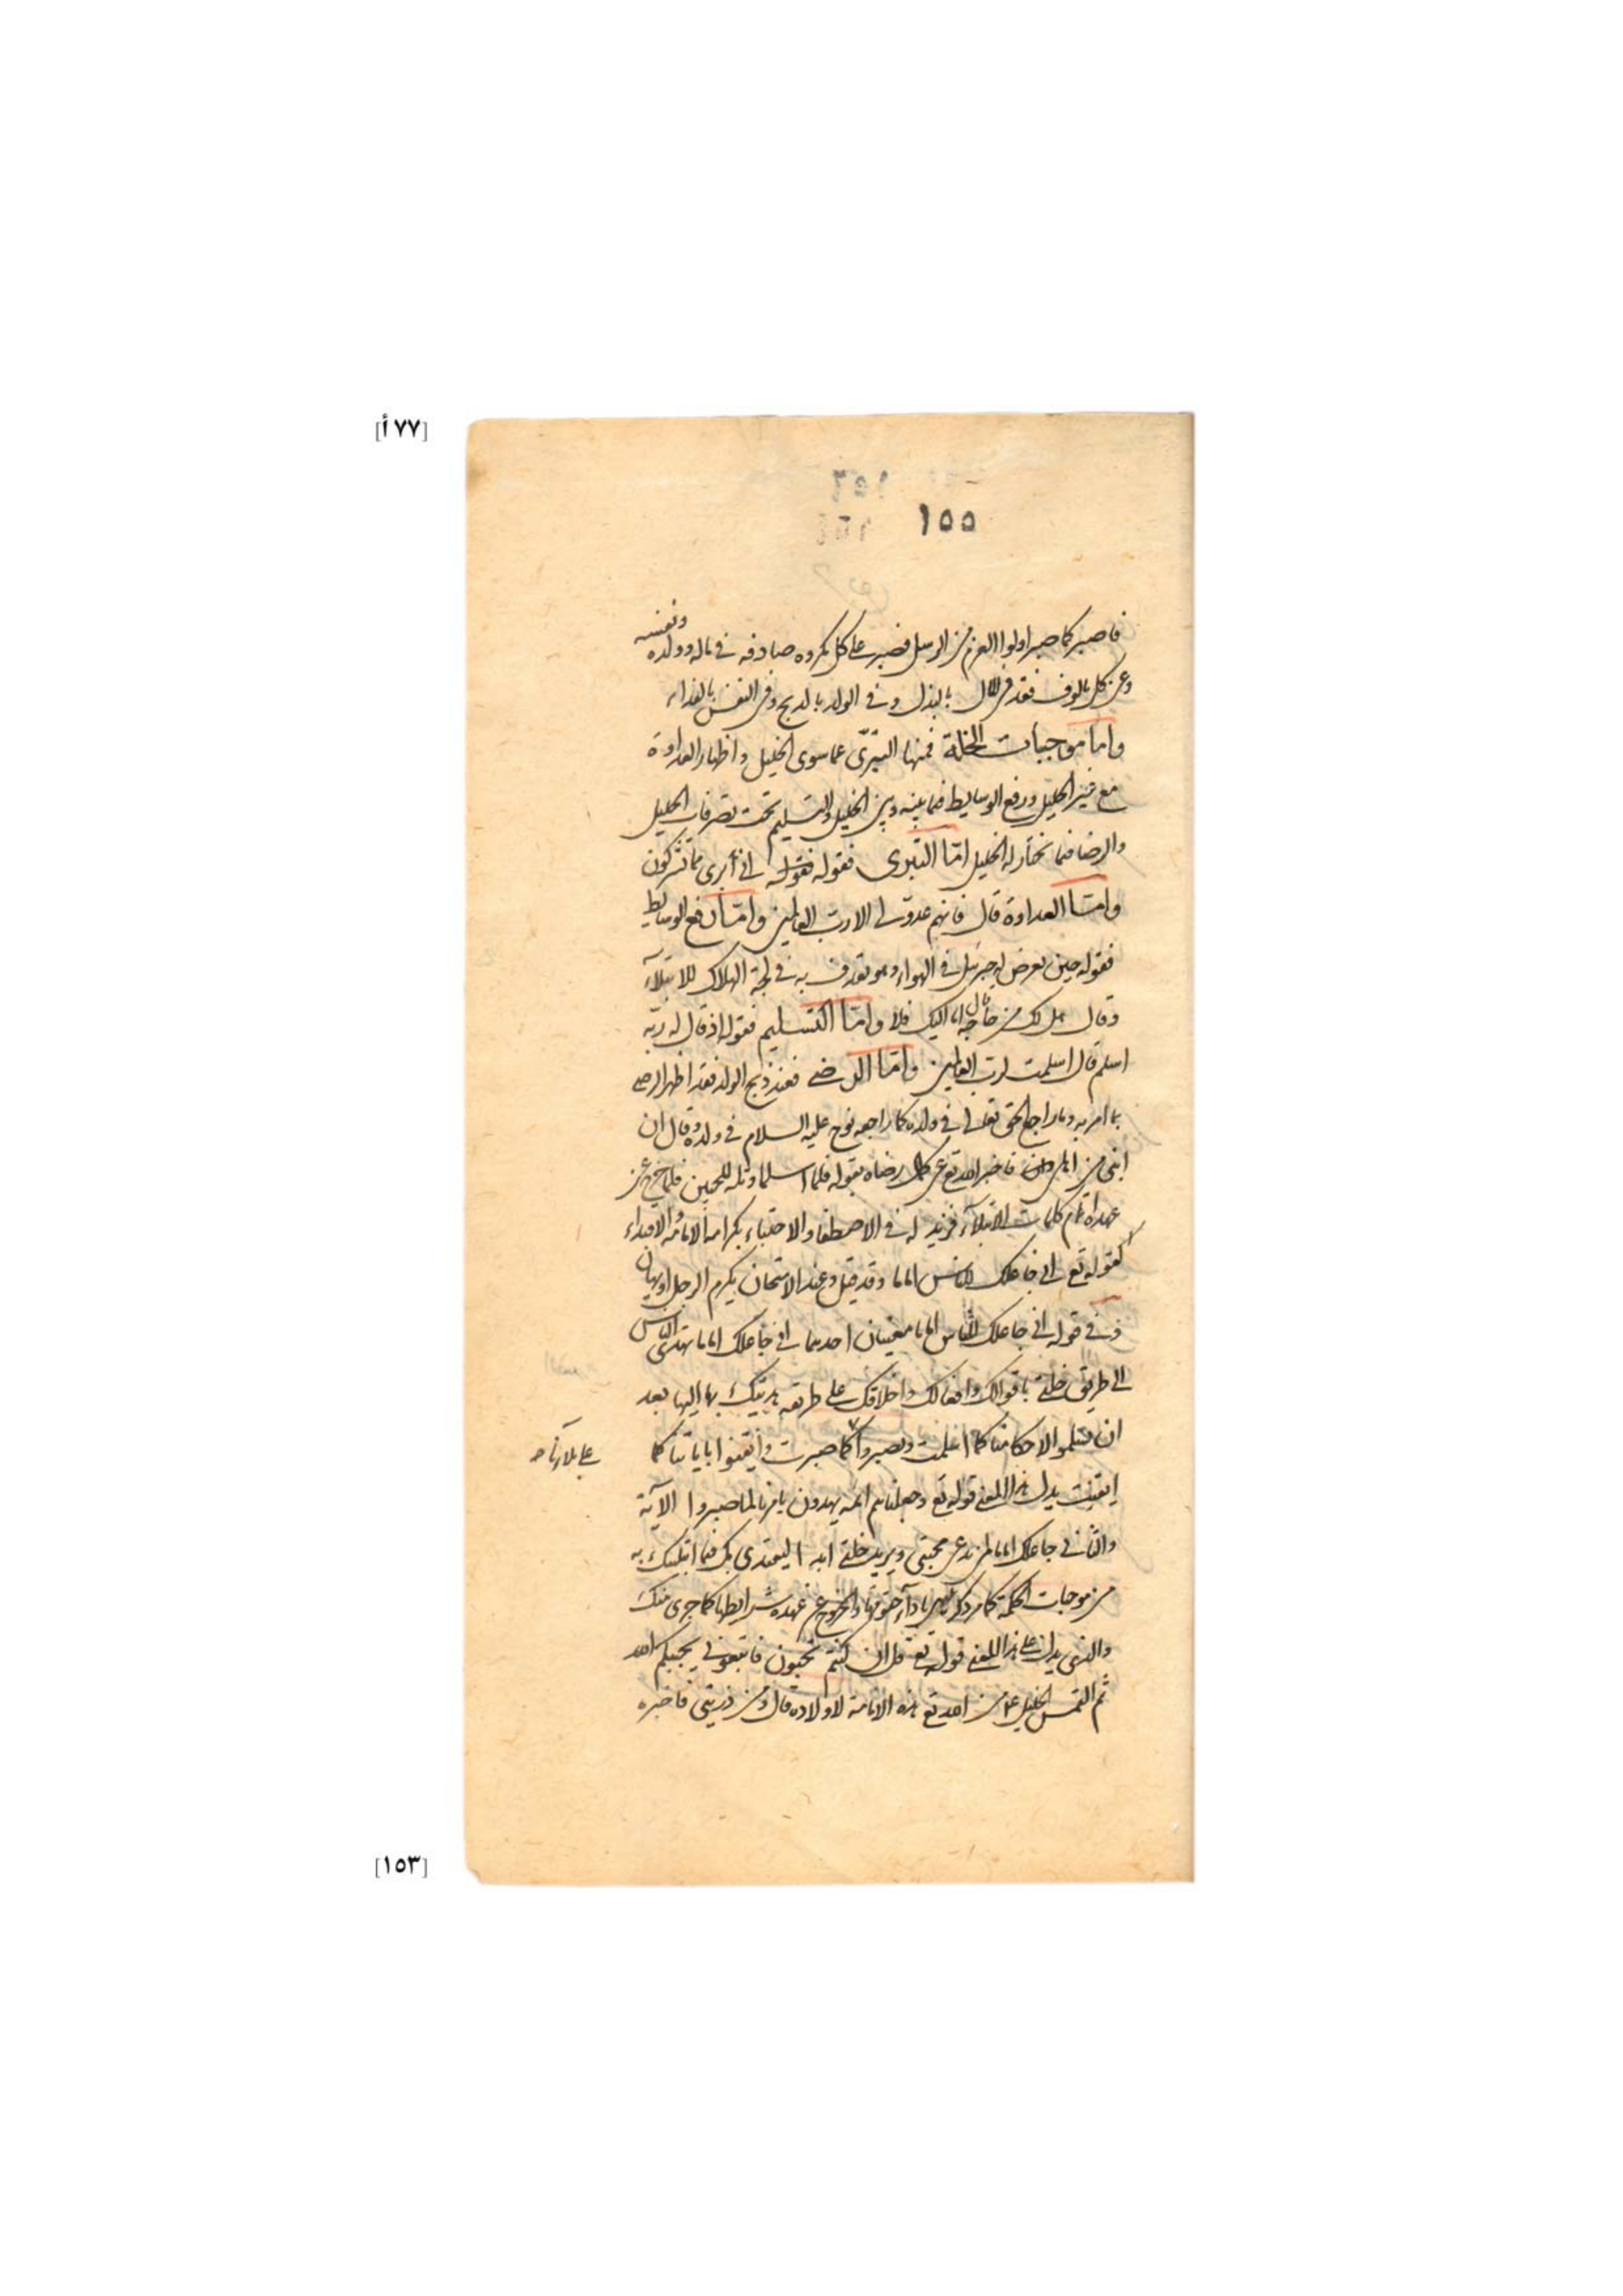 [٧٧ أ]
١٥٥
فاصبر كما صبر اولوا العزم من الرسل فصبر على كل مكروه صادفه في ماله وولده ونفسه
وعن كل مالوف فقد في المال بالبذل وفي الولد بالذبح وفي النفس بالفداء
واما موجبات الخلة فمنها التبرّى عما سوى الخليل واظهار العداوة
مع غير الخليل ورفع الوسايط فيما بينه وبين الخليل والتسليم تحت تصرفات الخليل
والرضا فيما يختار له الخليل امّا التبرى فقوله فقوله اني أبرى مما تشركون
وامّا العداوة قال فانهم عدوّ لى الا رب العالمين وامّا رفع الوسايط
فقوله حين تعرض له جبرئيل في الهواء وهو يقذف به في لجة الهلاك للابتلآء
وقال هل لك من حاجة قال اما اليك فلا وامّا التسليم فقوله اذ قال له ربّه
اسلم قال اسلمت لرب العالمين وامّا الرضى فعند ذبح الولد فقد اظهر الرضى
بما امر به وما راجع الحق تعالى في ولده كما راجعه نوح عليه السلام في ولده وقال ان
ابنى من اهلى وان فاخبر الله تع عن كمال رضاه بقوله فلما اسلما وتله للجبين فلما خرج عن
عهدة اتمام كلمات الابتلآء فزيد له في الاصطفا والاجتباء بكرامة الامامة والاقتداء
كقوله تع انى جاعلك للناس اماما وقد قيل وعند الامتحان يكرم الرجل او يهان
وفي قوله انى جاعلك للناس اماما معنيان احدهما انى جاعلك اماما يهتدى الناس
الى طريق خلتى باقوالك وافعالك واخلاقك على طريقه هديتك بها اليها بعد
ان يسلموا لاحكامنا كما اسلمت ويصبروا كما صبرت وايقنوا باياتنا كما
على بلآئنا صح
ايقنت يدل هذا المعنى قوله تع وجعلناهم ائمة يهدون بامرنا لما صبروا الآية
والثانى جاعلك اماما لمن يدعى محبتى ويريد خلتى ابدا ليقتدى بك فيما ابتليتك به
من موجبات الحكمة كما مر ذكرها باداء حقوقها والخروج عن عهدة شرايطها كما جرى منك
والذى يدل على هذا المعنى قوله تع قل ان كنتم تحبون فاتبعونى يحببكم الله
ثم التمس الخليل عم من الله تع هذه الامامة لاولاده قال ومن ذريتى فاخبره
[١٥٣]